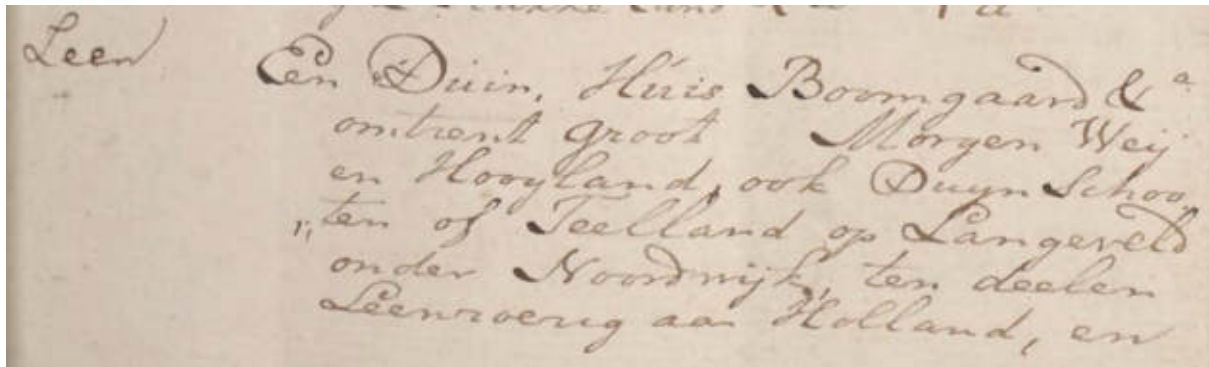 Leen
Een Duin, Huis Boomgaard &a
omtrent groot Morgen Weij
en Hooyland, ook Duyn Schoo„
„ten of Teelland op Langeveld
onder Noordwijk, ten deelen
Leenroerig aan Holland, en